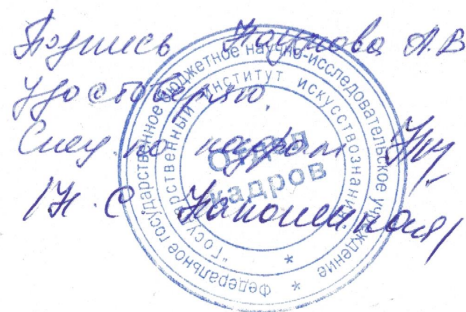 Подпись Наумова А.В
удостоверяю.
Спец. по кадрам
/Н.С
Федеральное государственное бюджетное научно-исследовательское учреждение
"Государственный институт искусствознания"
Отдел
кадров